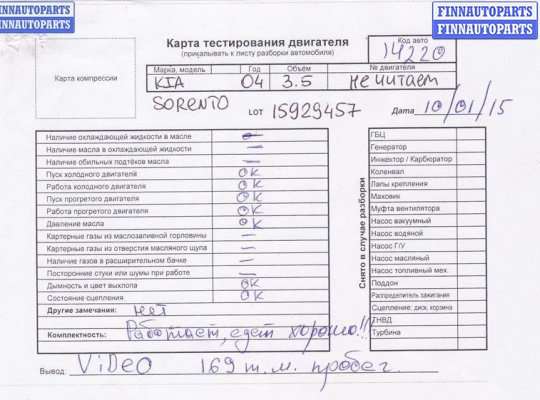 FINNAUTOPARTS
FINNAUTOPARTS
FINNAUTOPARTS
FINNAUTOPARTS
Карта тестирования двигателя
(прикалывать к листу разборки автомобиля)
Код авто
14220
Карта компрессии
Марка, модель Год Объём № двигателя
KIA 04 3.5 не читаем
SORENTO LOT 15929457 Дата 10/01/15
Наличие охлаждающей жидкости в масле –
Наличие масла в охлаждающей жидкости –
Наличие обильных подтёков масла –
Пуск холодного двигателя ОК
Работа холодного двигателя ОК
Пуск прогретого двигателя ОК
Работа прогретого двигателя ОК
Давление масла ОК
Картерные газы из маслозаливной горловины –
Картерные газы из отверстия масляного щупа –
Наличие газов в расширительном бачке –
Посторонние стуки или шумы при работе –
Дымность и цвет выхлопа ОК
Состояние сцепления ОК
Другие замечания: нет
Комплектность: Работает, едет хорошо!!!
Снято в случае разборки
ГБЦ
Генератор
Инжектор / Карбюратор
Коленвал
Лапы крепления
Маховик
Муфта вентилятора
Насос вакуумный
Насос водяной
Насос Г/У
Насос масляный
Насос топливный мех.
Поддон
Распределитель зажигания
Сцепление: диск, корзина
ТНВД
Турбина
Вывод: ViDeo 169 т.м. пробег.